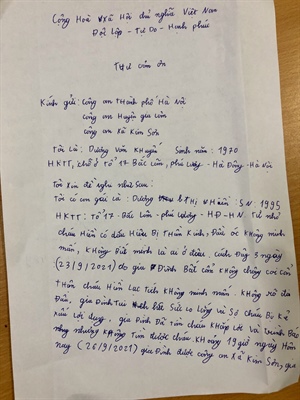 Cộng Hoà Xã Hội chủ nghĩa Việt Nam
Độc Lập - Tự Do - Hạnh phúc
Thư cảm ơn
Kính gửi: Công an Thành phố Hà Nội
Công an Huyện gia Lâm
Công an Xã Kim Sơn
Tôi là: Dương Văn Khuyến Sinh năm: 1970
HKTT, chỗ ở tổ 17 Bắc Lãm, phú Lương - Hà Đông - Hà Nội
Tôi Xin đề nghị như Sau:
Tôi có con gái là: Dương Thị Hiền: SN: 1995
HKTT: Tổ 17 - Bắc Lãm - phú Lương - HĐ - H.N. Tư nhỏ
cháu Hiền có dấu Hiệu Bị Thần Kinh, Đầu óc Không minh
mẫn, Không Biết mình là ai ở đâu, cách Đây 3 ngày
(23/9/2021) do gia Đình Bất cẩn không
Thân cháu Hiền Lạc Tinh Không minh mẫn. Không rõ địa
Lợi dụng. gia Đình Đã tìm cháu KHắp nơi và Trình Báo
nhưng Không Tìm được cháu KHoảng 19 giờ ngày Hôm
nay (26/9/2021) gia Đình được công an Xã Kim Sơn, gia